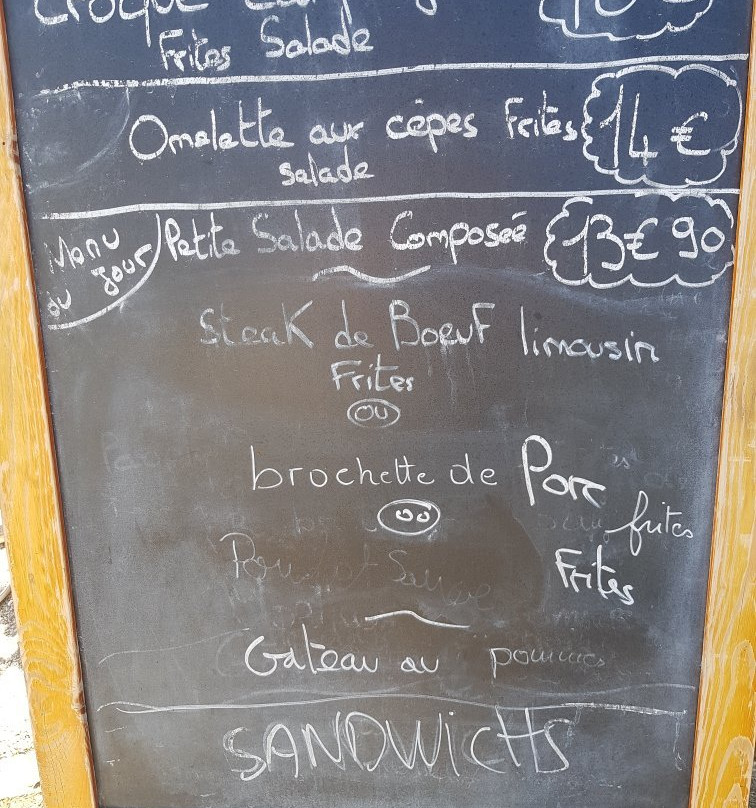 Croque
Frites Salade
Omelette aux cèpes Frites 14€
salade
Menu du jour
Petite Salade Composeé 13€90
Steak de Boeuf limousin
Frites
ou
brochette de Porc frites
ou
Frites
Gateau au pommes
SANDWICHS